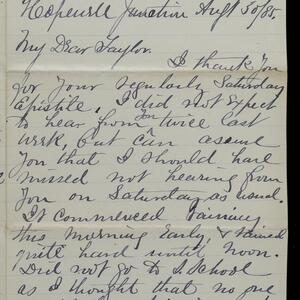 Hopewell Junction Augt 30/85.
My Dear Taylor.
I thank you
for your regularly Saturday
Epistile, I did not expect
to hear from you twice last
week, but can assure
you that I should have
missed not hearing from
you on Saturday as usual.
It commenced raining
this morning early, & rained
quite hard until noon.
Did not go to S. School
as I thought that no one